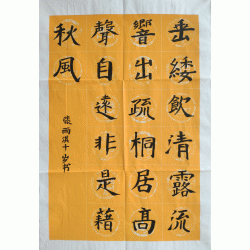 垂緌飲清露流
響出疏桐居高
聲自遠非是藉
秋風
張雨淇十岁书